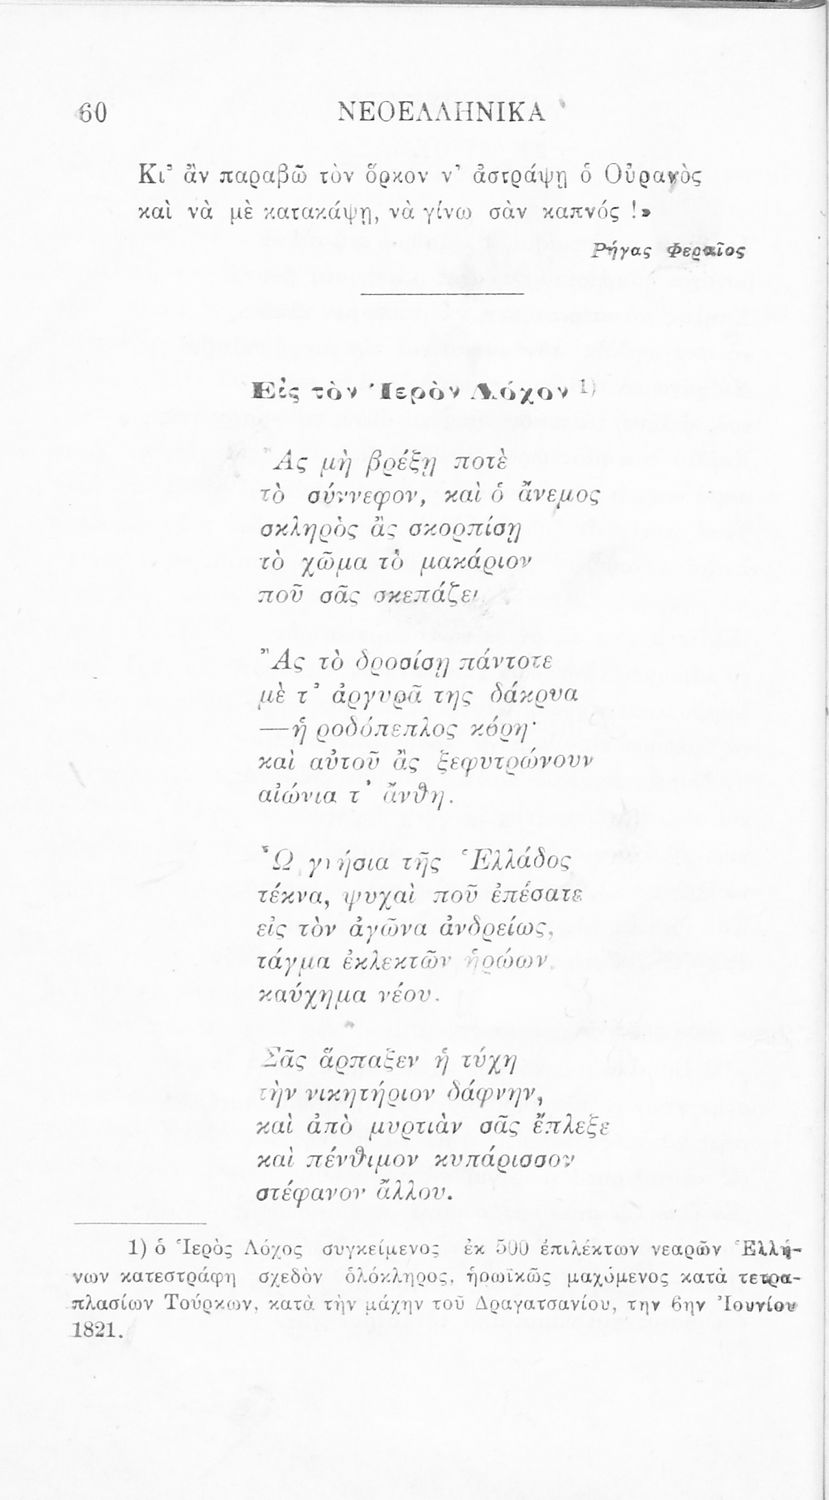 60 ΝΕΟΕΛΛΗΝΙΚΑ
Κι᾽ ἂν παραβῶ τὸν ὅρκον ν᾽ ἀστράψῃ ὁ Οὐρανὸς
καὶ νὰ μὲ κατακάψῃ, νὰ γίνω σὰν καπνός !»
Ρήγας Φεραῖος
Εἰς τὸν Ἱερὸν Λόχον 1)
Ἂς μὴ βρέξῃ ποτὲ
τὸ σύννεφον, καὶ ὁ ἄνεμος
σκληρὸς ἂς σκορπίσῃ
τὸ χῶμα τὸ μακάριον
ποῦ σᾶς σκεπάζει
Ἂς τὸ δροσίσῃ πάντοτε
μὲ τ᾽ ἀργυρᾶ της δάκρυα
—ἡ ροδόπεπλος κόρη·
καὶ αὐτοῦ ἂς ξεφυτρώνουν
αἰώνια τ᾽ ἄνθη.
Ὦ γνήσια τῆς Ἑλλάδος
τέκνα, ψυχαὶ ποῦ ἐπέσατε
εἰς τὸν ἀγῶνα ἀνδρείως,
τάγμα ἐκλεκτῶν ἡρώων,
καύχημα νέον.
Σᾶς ἅρπαξεν ἡ τύχη
τὴν νικητήριον δάφνην,
καὶ ἀπὸ μυρτιὰν σᾶς ἔπλεξε
καὶ πένθιμον κυπάρισσον
στέφανον ἄλλον.
1) ὁ Ἱερὸς Λόχος συγκείμενος ἐκ 500 ἐπιλέκτων νεαρῶν Ἑλλή-
νων κατεστράφη σχεδὸν ὁλόκληρος, ἡρωϊκῶς μαχόμενος κατὰ τετρα-
πλασίων Τούρκων, κατὰ τὴν μάχην τοῦ Δραγατσανίου, την 6ην Ἰουνίου
1821.